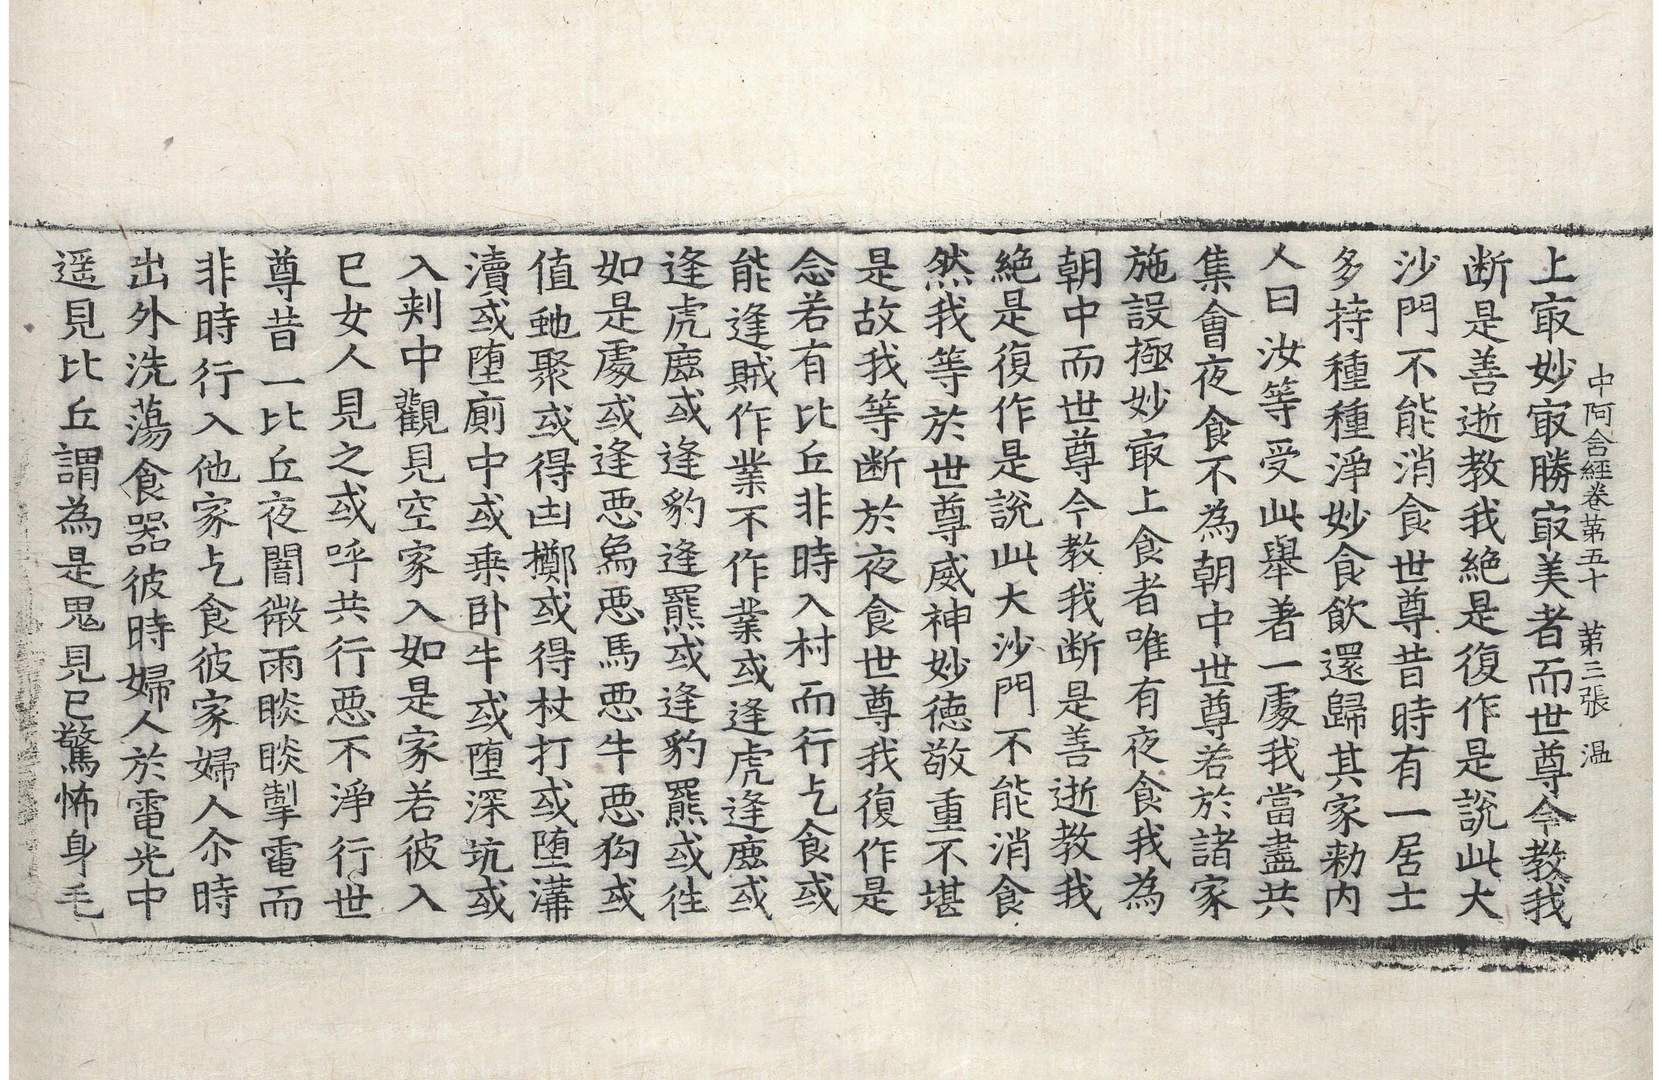 中阿含經卷第五十　第三張　温
上㝡妙㝡勝㝡美者而世尊今教我
断是善逝教我絶是復作是說此大
沙門不能消食世尊昔時有一居士
多持種種淨妙食飲還歸其家勑内
人曰汝等受此舉著一處我當盡共
集會夜食不為朝中世尊若於諸家
施設極妙㝡上食者唯有夜食我為
朝中而世尊今教我断是善逝教我
絶是復作是說此大沙門不能消食
然我等於世尊威神妙徳敬重不堪
是故我等断於夜食世尊我復作是
念若有比丘非時入村而行乞食或
能逢賊作業不作業或逢虎逢鹿或
逢虎鹿或逢豹逢羆或逢豹羆或往
如是處或逢悪象悪馬悪牛悪狗或
值虵聚或得凷擲或得杖打或堕溝
瀆或堕廁中或乗卧牛或堕深坑或
入刺中觀見空家入如是家若彼入
已女人見之或呼共行悪不淨行世
尊昔一比丘夜闇微雨睒睒掣電而
非時行入他家乞食彼家婦人尒時
出外洗蕩食器彼時婦人於電光中
遥見比丘謂為是鬼見已驚怖身毛